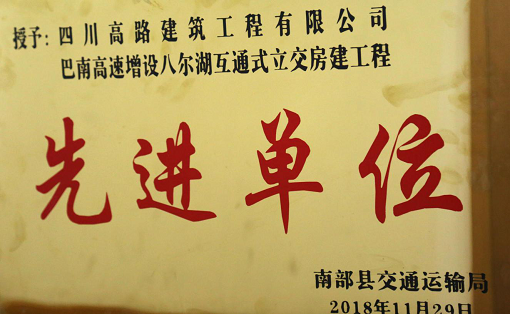 授予:四川高路建筑工程有限公司
巴南高速增设八尔湖互通式立交房建工程
先进单位
南部县交通运输局
2018年11月29日